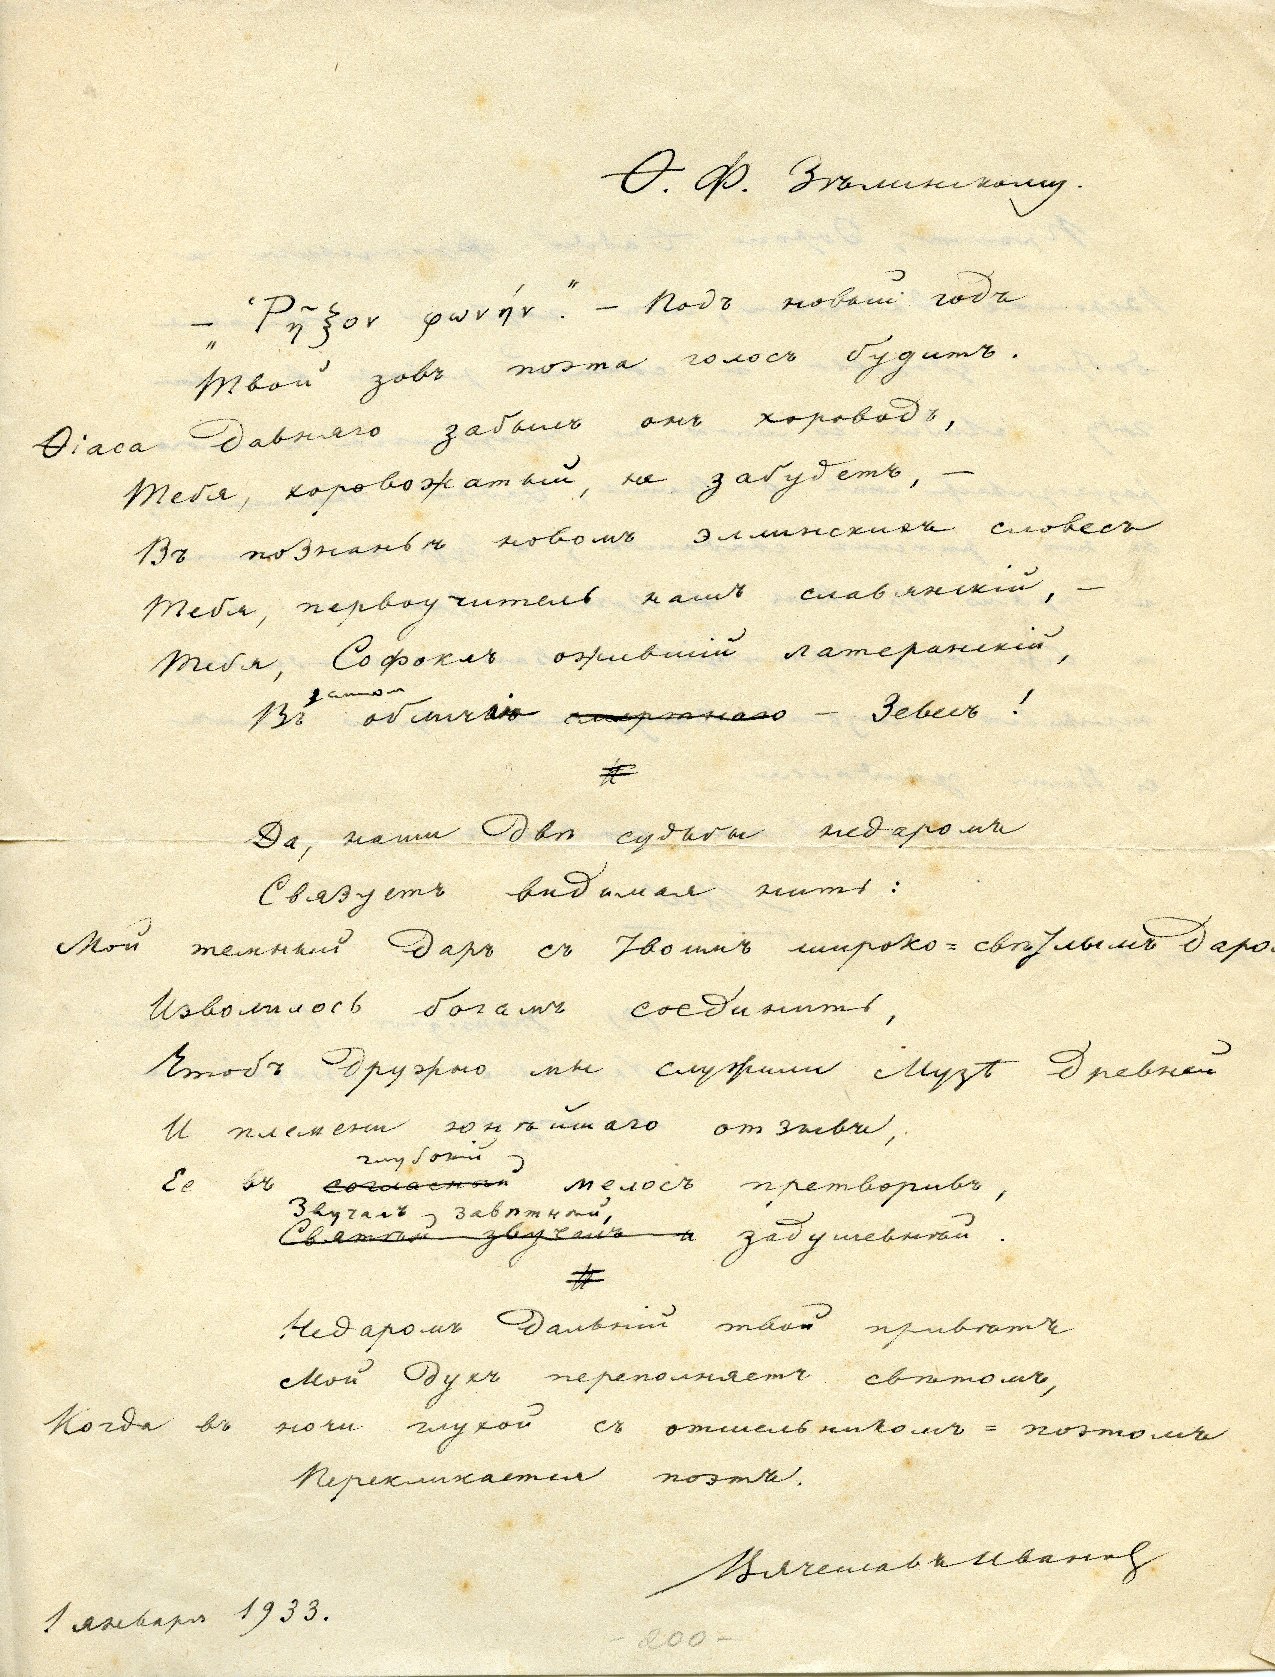 Ѳ. Ф. Зѣлинскому.
— „Ῥῆξον φωνήν“. — Подъ новый годъ
Твой зовъ поэта голосъ будитъ.
Ѳіаса давняго забылъ онъ хороводъ,
Тебя, хоровожатый, не забудетъ, —
Въ познаньи новомъ эллинскихъ словесъ
Тебя, первоучитель нашъ славянскій, —
Тебя, Софоклъ ожившій латеранскій,
Въ обличьи смертнаго — Зевесъ!
#
Да, наши двѣ судьбы недаромъ
Связуетъ видимая нить:
Мой темный даръ съ твоимъ широко-свѣтлымъ даро
Изволилось богамъ соединить,
Чтобъ дружно мы служили Музѣ древней
И племени юнѣйшаго отзывъ,
глубокій
Ее въ согласный мелосъ претворивъ,
Звучалъ завѣтный,
Святой звучалъ и задушевный.
#
Недаромъ дальній твой привѣтъ
Мой духъ переполняетъ свѣтомъ,
Когда въ ночи глухой съ отшельникомъ-поэтомъ
Перекликается поэтъ.
Вячеславъ Ивановъ
1 января 1933.
- 200 -